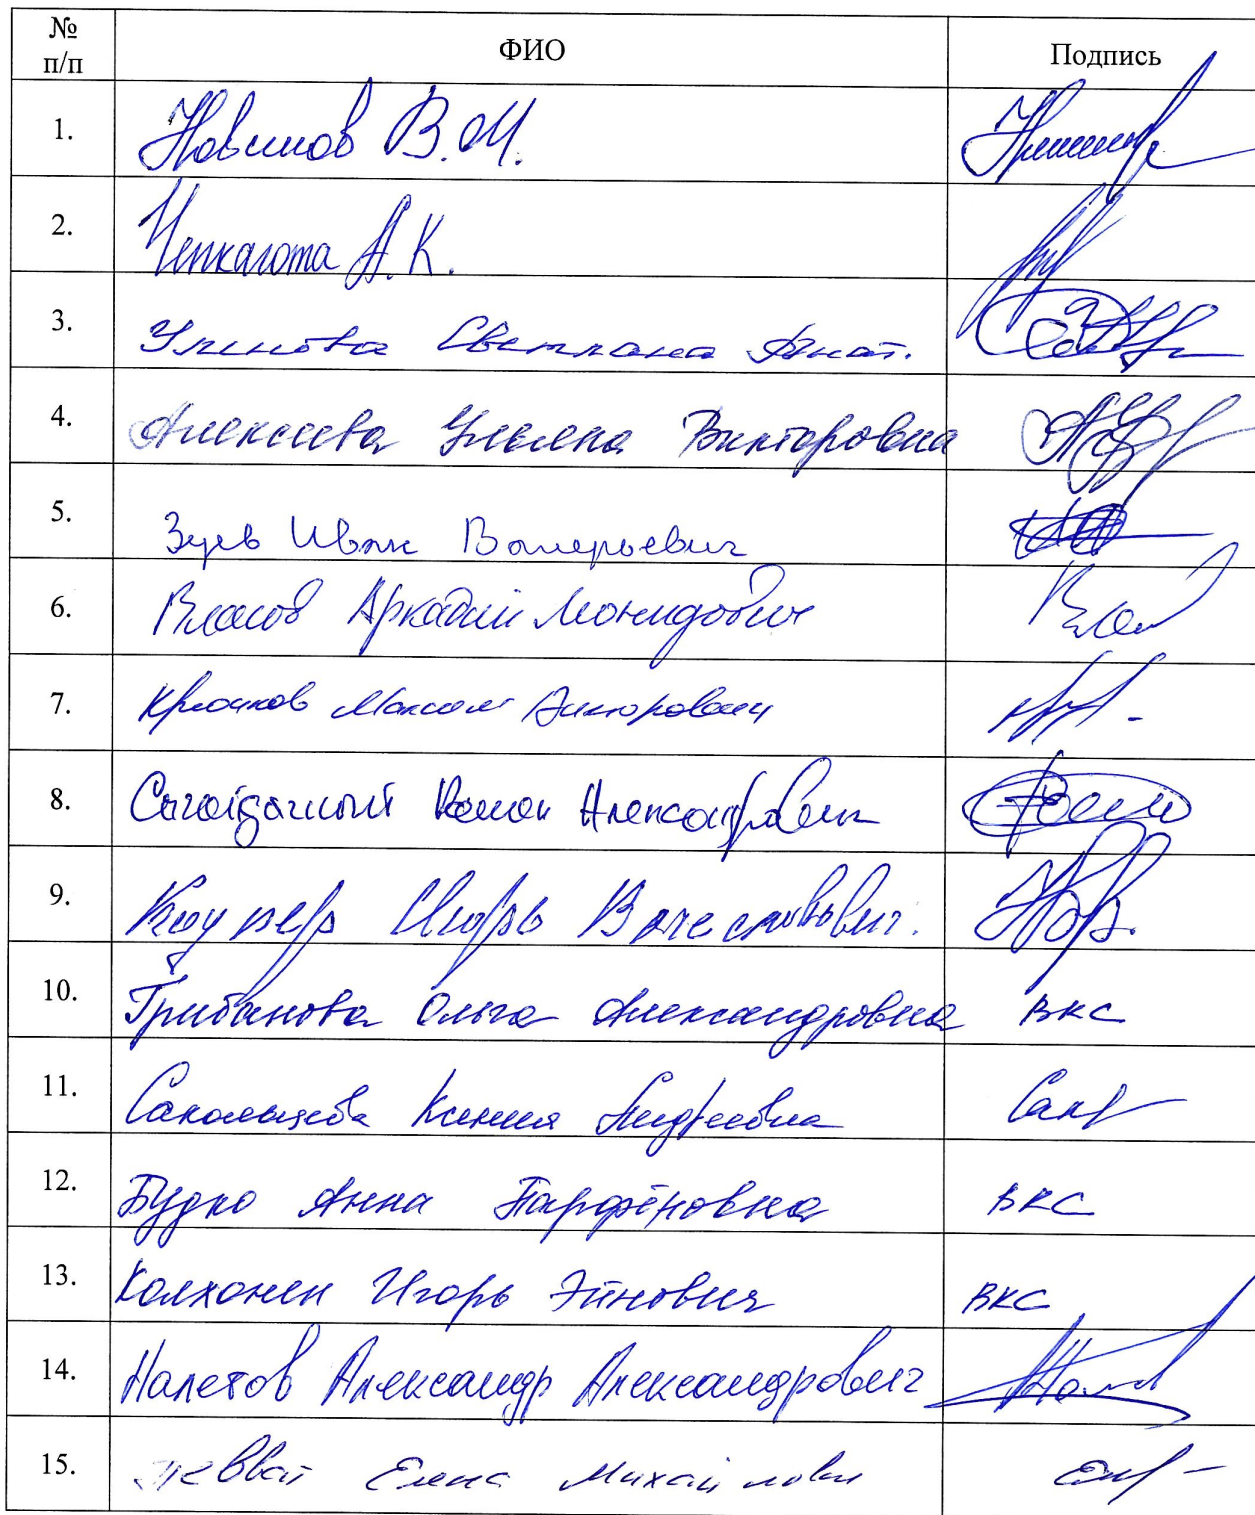 № п/п ФИО Подпись
1. Новиков В.М.
2. Чепкагота А.К.
3. Светлана Анат.
4. Алексеева Ульяна Викторовна
5. Зуев Иван Валерьевич
6. Власов Аркадий Леонидович
7. Крючков Максим Викторович
8. Сагайдачный Роман Александрович
9. Игорь Вячеславович.
10. Грибанова Ольга Александровна ВКС
11. Ксения Андреевна
12. Будко Анна Парфёновна ВКС
13. Колхонен Игорь Эйнович ВКС
14. Налетов Александр Александрович
15. Елена Михайловна